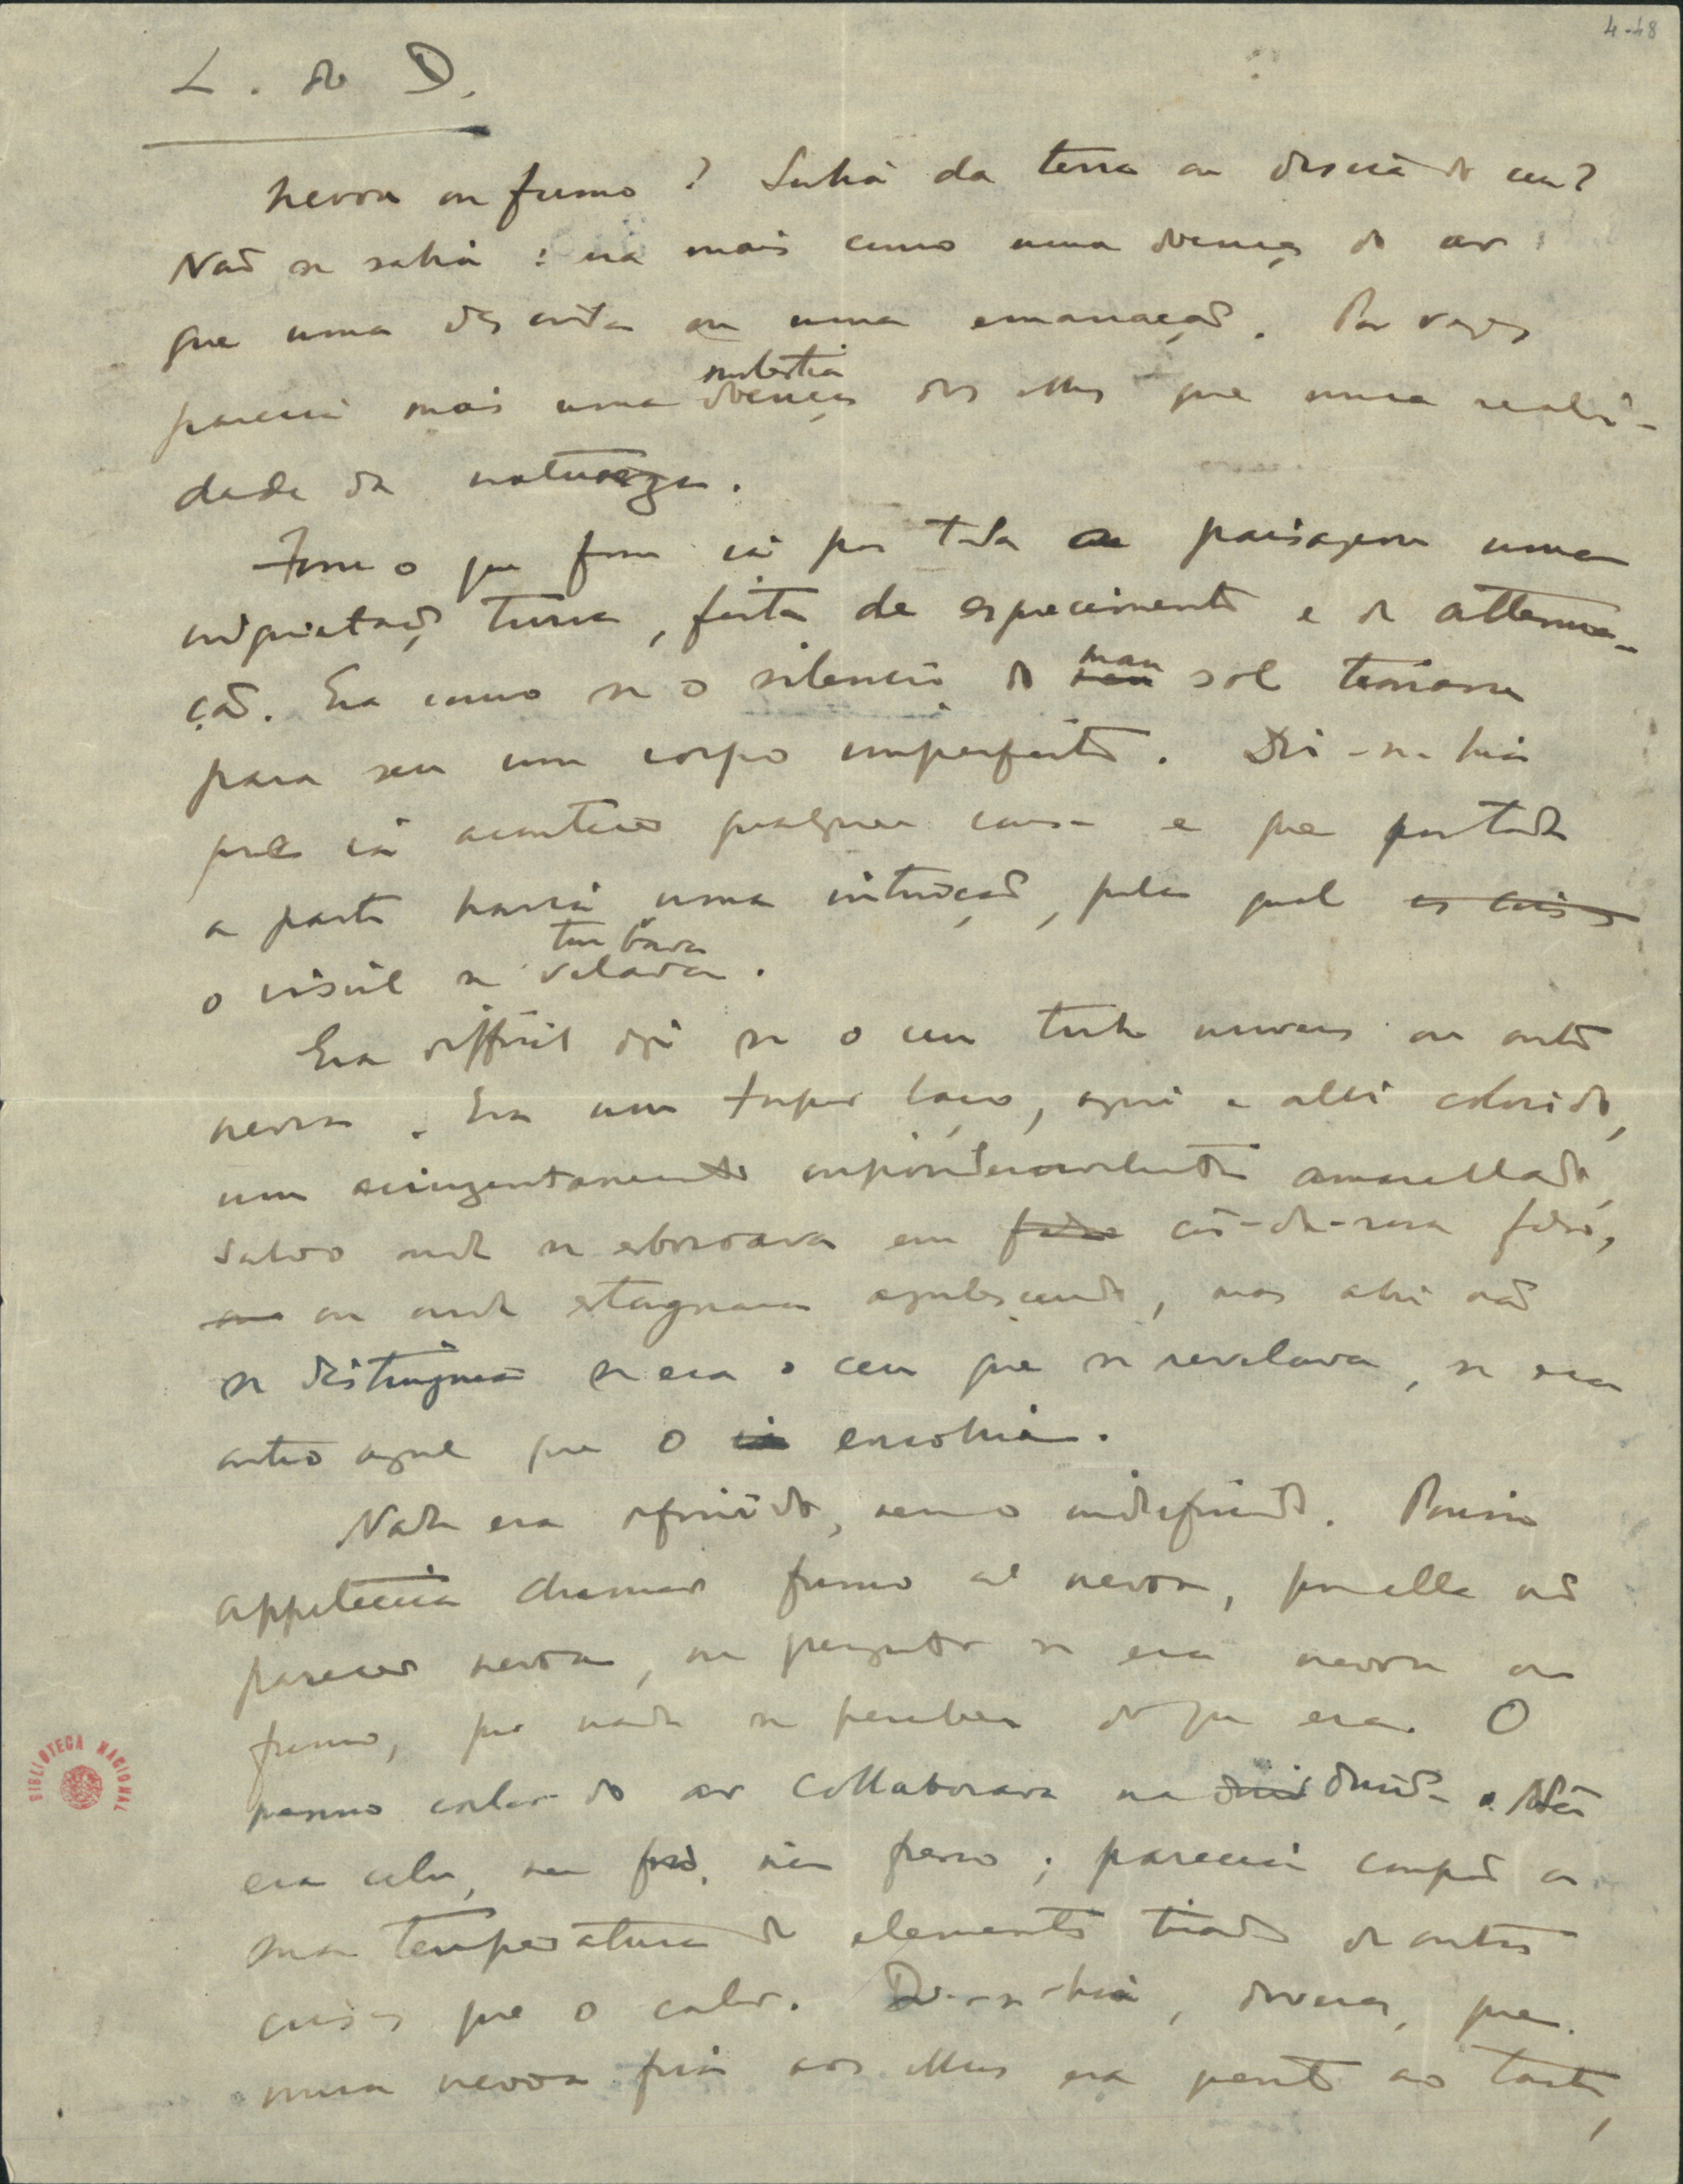 4-48
L. do D.
Nevoa ou fumo? Subia da terra ou descia do ceu?
Não se sabia: era mais como uma doença do ar
que uma descida ou uma emanação. Por vezes
parecia mais uma doença dos olhos que uma reali-
molestia
dade da natureza.
Fosse o que fosse ia por toda a paisagem uma
inquietação turva, feita de esquecimento e de attenua-
ção. Era como se o silencio do mau sol tomasse
para seu um corpo imperfeito. Dir-se-hia
que ia acontecer qualquer coisa e que por toda
a parte havia uma intuição, pela qual as coisas
o visivel se velava.
turbava
Era difficil dizer se o ceu tinha nuvens ou antes
nevoa. Era um torpor baço, aqui e alli colorido,
um acinzentamento imponderavelmente amarellado,
salvo onde se esboroava em côr-de-rosa falso,
ou onde estagnava azulescendo, mas ahi não
se distinguia se era o ceu que se revelava, se era
outro azul que o encobria.
Nada era definido, nem o indefinido. Por isso
appetecia chamar fumo á nevoa, por ella não
parecer nevoa, ou perguntar se era nevoa ou
fumo, por nada se perceber do que era. O
mesmo calor do ar collaborava na duvida. Não
era calor, nem frio, nem fresco; parecia compôr a
sua temperatura de elementos tirados de outras
coisas que o calor. Dir-se-hia, deveras, que
uma nevoa fria aos olhos era quente ao tacto,
BIBLIOTECA NACIONAL